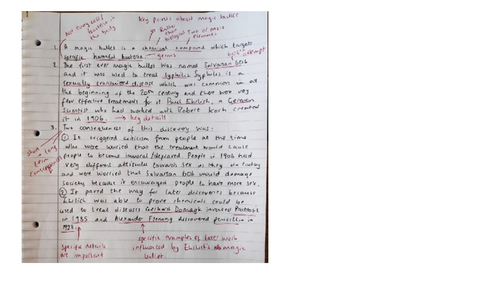 Key points about magic bullets
Not every
bacteria in
the body
1. A magic bullet is a chemical compound which targets
specific harmful bacteria germs
2. The first ever magic bullet was named Salvarsan 606
and it was used to treat Syphilis. Syphilis is a
sexually transmitted disease which was common in
the beginning of the 20th century and there were very
few effective treatments for it. Paul Ehrlich, a German
Scientist who had worked with Robert Koch created
it in 1906. → key details
3. Two consequences of this discovery was:
① It triggered criticism from people at the time
who were worried that the treatment would cause
people to become immoral/depraved. People in 1906 had
very different attitudes towards sex as they do today
and were worried that Salvarsan 606 would damage
society because it encouraged people to have more sex.
② It paved the way for later discoveries because
Ehrlich was able to prove chemicals could be
used to treat disease. Gerhard Domagk invented Prontosil
in 1935 and Alexander Fleming discovered penicillin in
1928
Short + long
term
consequences
Specific details
are important
specific examples of later work
influenced by Ehrlich's magic
bullet